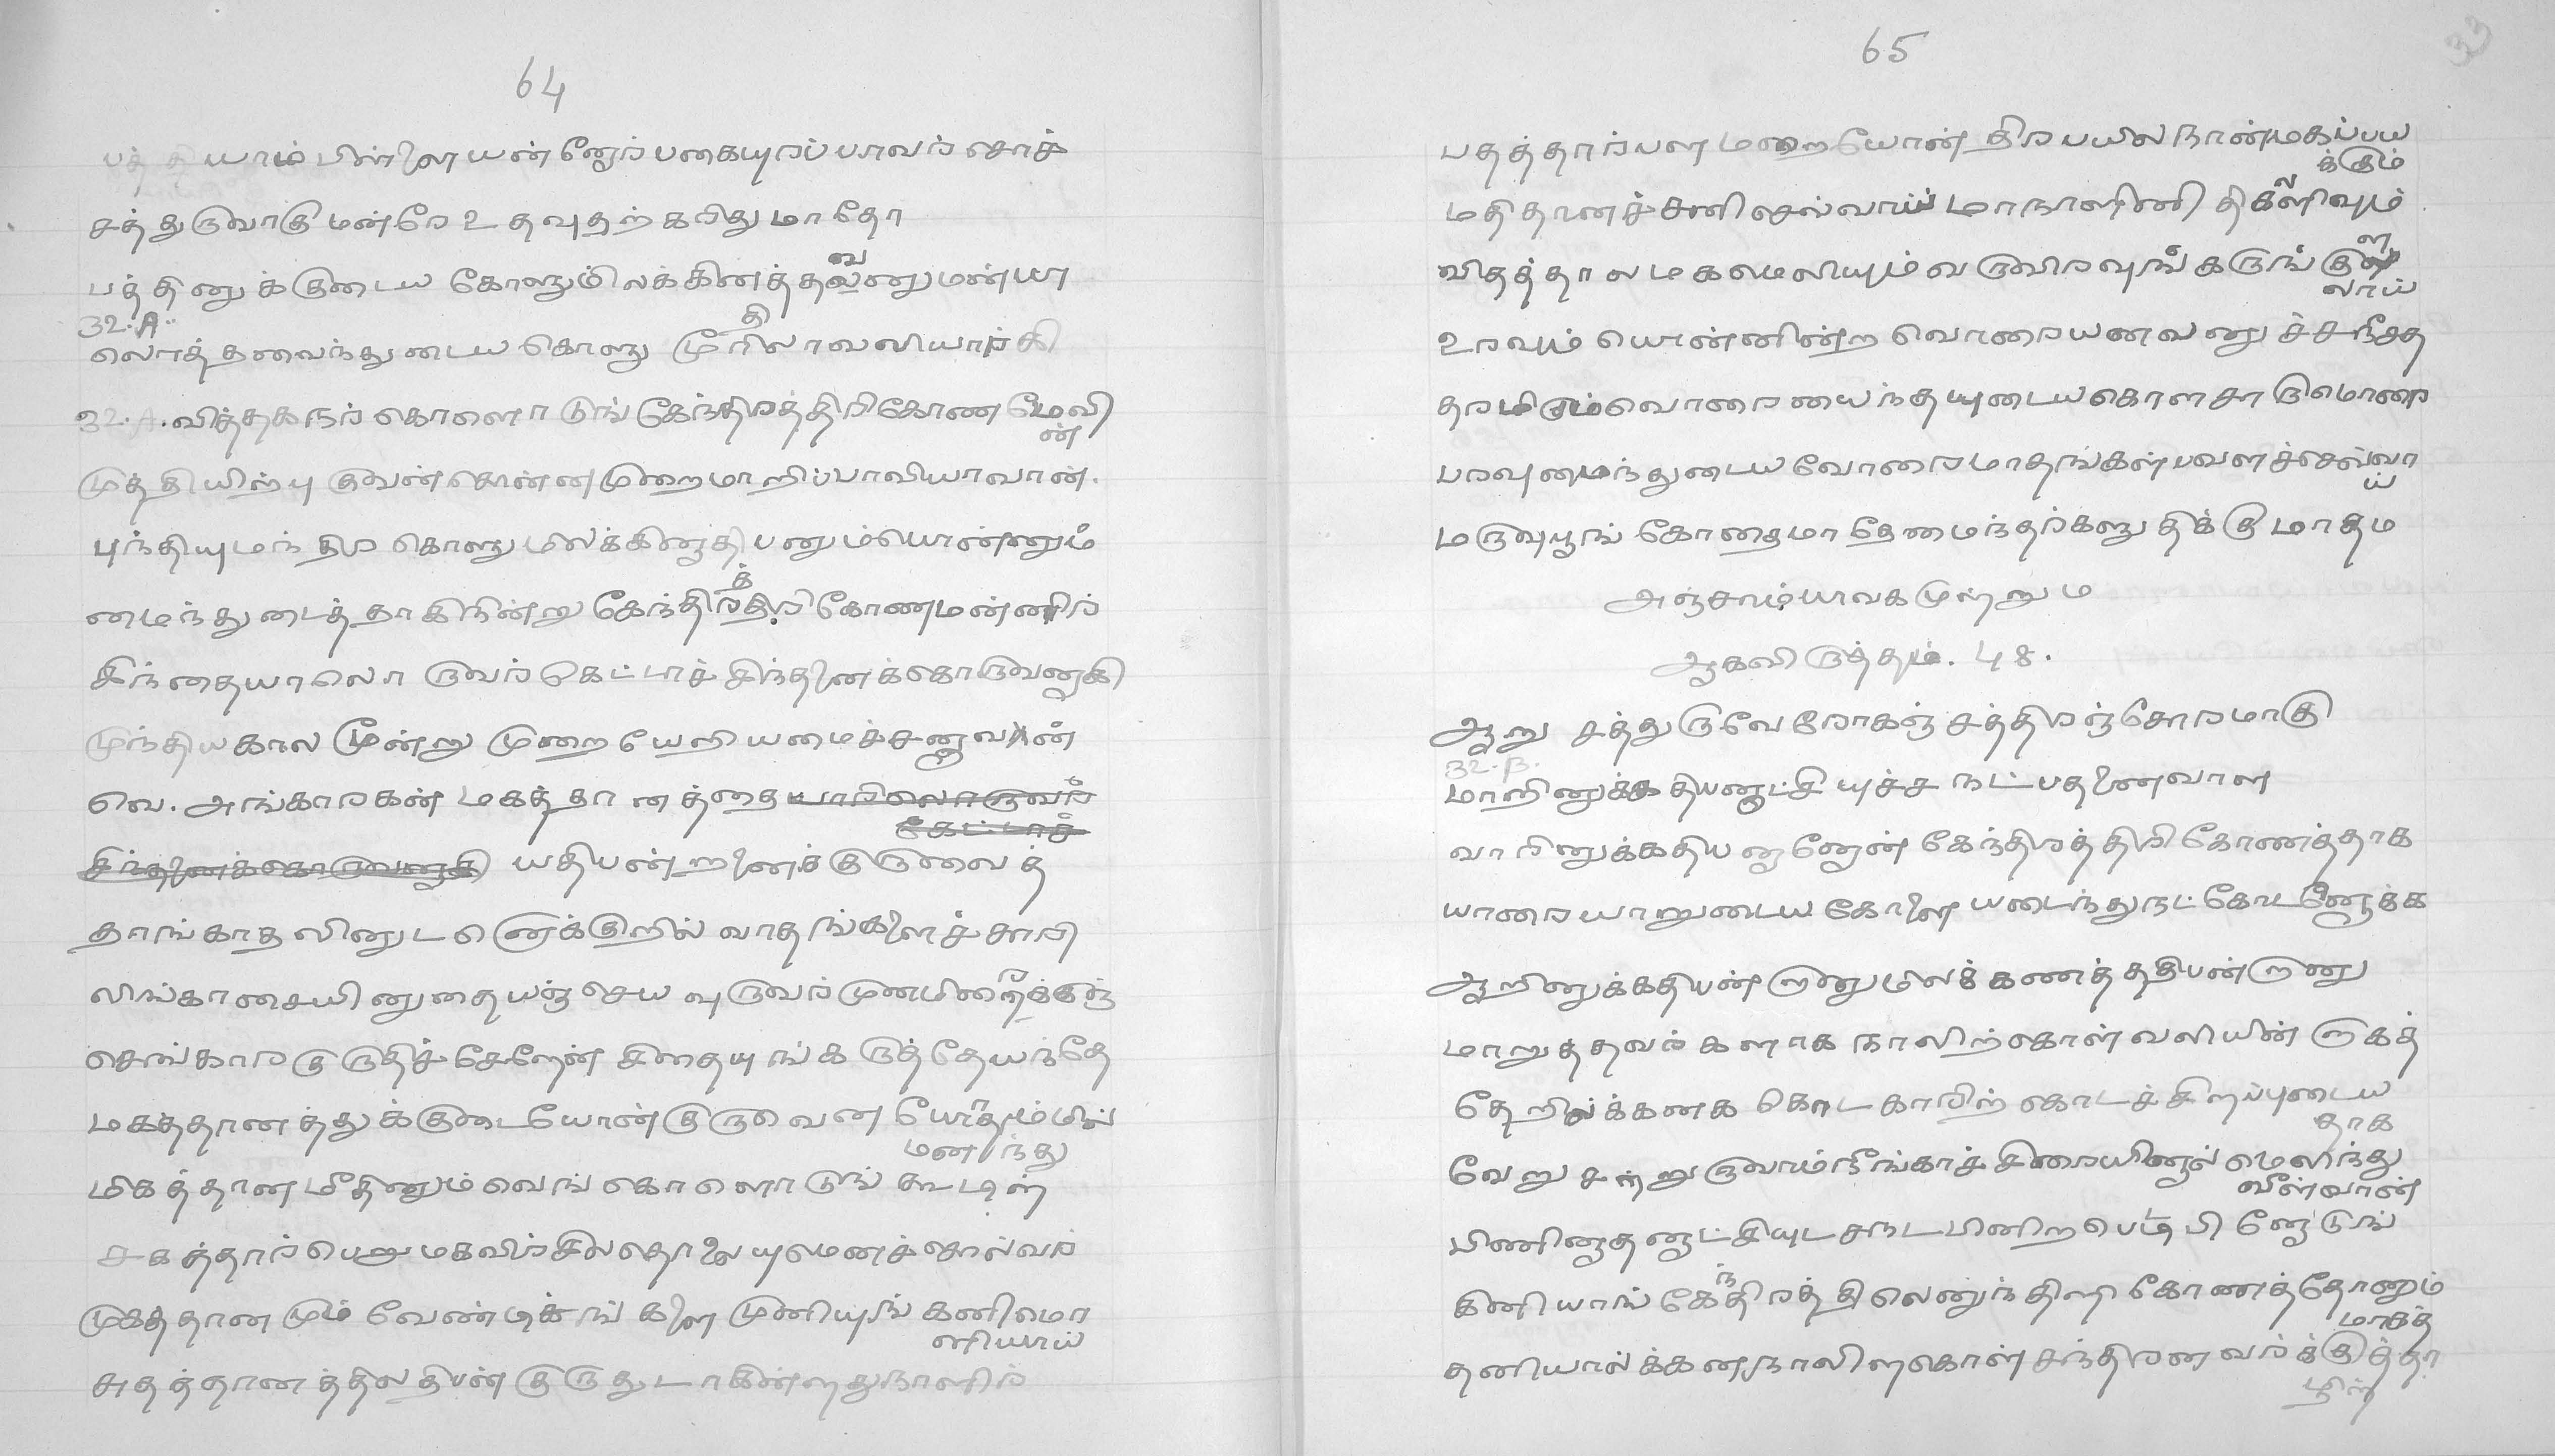 64
பத்தியாம் பிள்ளையன்னேர் பகையுரப் பாவர் சேரச்
சத்துருவாகுமன்றே உதவுதற்கரிது மாதோ
பத்தினுக்குடைய கோளுமிலக்கினத்தலவனுமன்பா
32.A
லொத்தவைந்துடைய கொளு முதிரிலாவலியார்கி
32.A. வித்தகநர் கொளொடுங் கேந்திரத்திரிகோண மேவி
ன்
முத்தியிற்புகுவன் சொன்ன முறைமாறிப்பாவியாவான்.
புந்தியுமந்திர கொளுமிலக்கினதிபனும் பொன்னும்
மைந்துடைத்தாகிநின்று கேந்திரத்திரி கோணமன்னிர்
சிந்தையாலொருவர் கெட்டாச் சிந்தனைக்கொருவனாகி
முந்திய கால மூன்று முறை யேறியமைச்சனாவான்
வெ. அங்காரகன் மகத்தானத்தை யாரிலொருவர்
கேட்டாச்
சிந்தனைக்கொருவனாகி யதிபன்றனைக்குருவைத்
தாங்காதலினுடனெக்குறில் வாதங்களைச் சூரி
லிங்காசையினுதையஞ் செய வுருவர்முனமினிரக்குஞ்
செங்காரகுருதிச் சேறேன் சிதையுங்கருத்தேயந்தே
மகத்தானத்துக்குடையோன் குருவென யோதும்மில்
மணந்து
மிகத்தான மீதினும் வெங்கொளொடுங் கூடில்
சுகத்தார்பெறு மகவிர்சிலதொலையுமெனச் சொல்வர்
முகத்தானமும் வேண்டிக்ங்களை முனியுங் கனிமொ
ளியாய்
சுதத்தானத்தில திபன் குருதுடாகின்னதுநாளில்
65
பதத்தார்பள மறையோன் திரபயில நான்மகப்பய
க்கும்
மதிதானச்சனி செல்வாய் மாநாளினி திகளிவும்
விதத்தால மகமெலியும் வடுவிரவுங் கடுங்குள
லாய்
உரவும் யொன்னின்ற வொரையனவனுச்சநீசத
தரமிகும்வொரை யைந்தயுடைய கொள சாருமொரை
பரவுமைந்துடைய வோரைமாதங்கள் பவளச்செவ்வா
ய்
மருவுபூங் கோதைமாதேமைந்தர்களு திக்கு மாதம
அஞ்சாம்பாவக முன்றும
ஆகவிருத்தம். 48.
ஆறு சத்துருவே ரோகஞ் சத்திரஞ்சோரமாகு
32.B.
மாறினுக்க தியனாட்சி யுச்ச நட்பதனைவான
வாரினுக்கதியனானேன் கேந்திரத்திரி கோணத்தாக
யாரையாறுடைய கோளை யடைந்துநட்கோடனேக்க
ஆறினுக்கதியன் றானுமிலக்கணத் ததிபன்றானு
மாறுத்தவர்களாக நாலிற்கொள் வலியின்றாகத்
தேறிலக்கனக கொடகாரிற் கொடச்சிறப்புடைய
தாக
வேறு சற்றுருவாம்நீங்காச் சிறையினால் மெலிந்து
வீள்வான்
பிணினாதனாட்சியுட சுநடபினிற பெடிபினேடுங்
கினியாங் கேந்திரத்திலெனுந்திரி கோணத்தோனும்
மாகத்
தனியால்க்கனநாலிளகொள் சந்திரனவர்க்குத்தா
ழில்